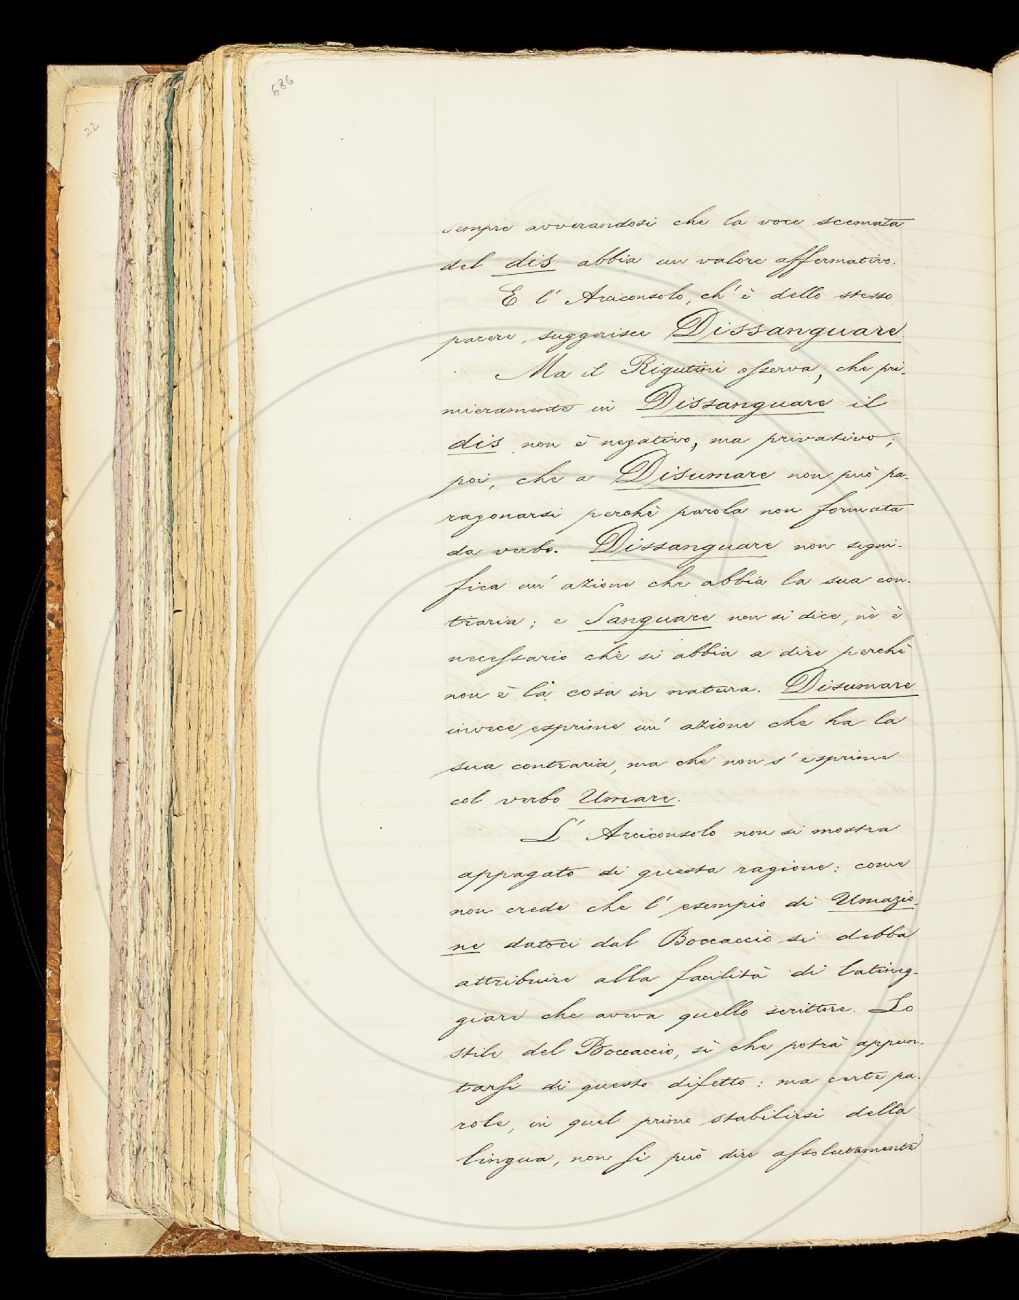 686
22
sempre avverandosi che la voce scemata
del dis abbia un valore affermativo.
E l' Arciconsolo, ch' è dello stesso
parere, suggerisce Dissanguare
Ma il Rigutini osserva, che pri-
mieramente in Dissanguare il
dis non è negativo, ma privativo;
poi, che a Disumare non può pa-
ragonarsi perchè parola non formata
da verbo. Dissanguare non signi-
fica un' azione che abbia la sua con-
traria; e Sanguare non si dice, nè è
necessario che si abbia a dire perchè
non è la cosa in natura. Disumare
invece esprime un' azione che ha la
sua contraria, ma che non s' esprime
col verbo Umare.
L' Arciconsolo non si mostra
appagato di questa ragione: come
non crede che l' esempio di Umazio-
ne datoci dal Boccaccio si debba
attribuire alla facilità di latineg-
giare che aveva quello scrittore. Lo
stile del Boccaccio, sì che potrà appun-
tarsi di questo difetto: ma certe pa-
role, in quel primo stabilirsi della
lingua, non si può dire assolutamente